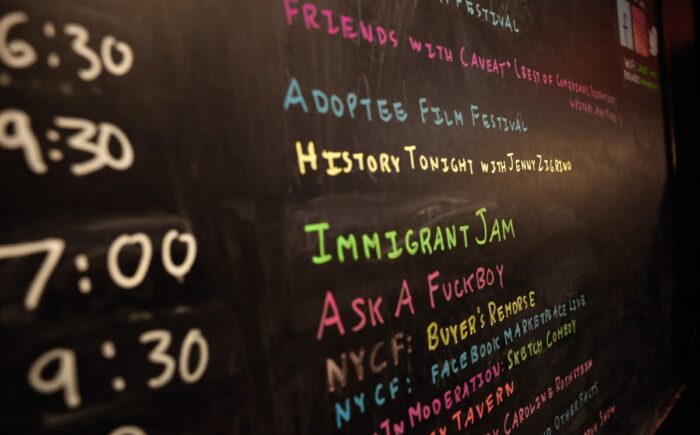 FESTIVAL
6:30 FRIENDS WITH CAVEAT* (BEST OF COMEDIANS, SCIENTISTS,
WRITERS, AND MORE!)
ADOPTEE FILM FESTIVAL
9:30 HISTORY TONIGHT WITH JENNY ZIGRINO
7:00 IMMIGRANT JAM
ASK A FUCKBOY
9:30 NYCF: BUYER'S REMORSE
NYCF: FACEBOOK MARKETPLACE LIVE
IN MODERATION: SKETCH COMEDY
TAVERN
CAROLINE ROTHSTEIN
OTHER FACTS
SHOW